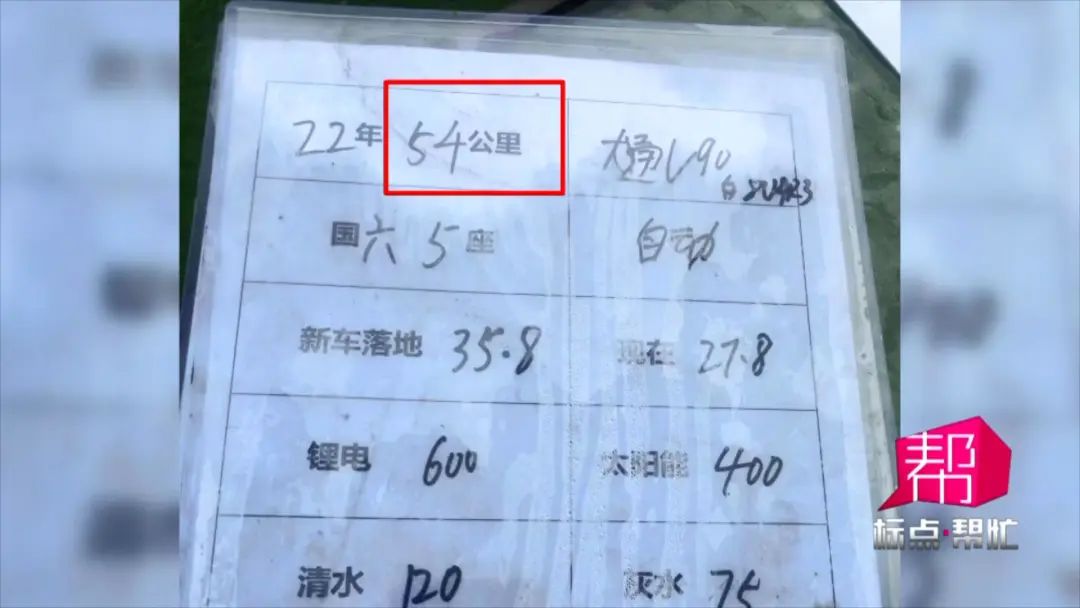 22年 54公里 大通V90
国六 5座 自动
新车落地 35.8 现在 27.8
锂电 600 太阳能 400
清水 120 灰水 75
帮
标点·帮忙